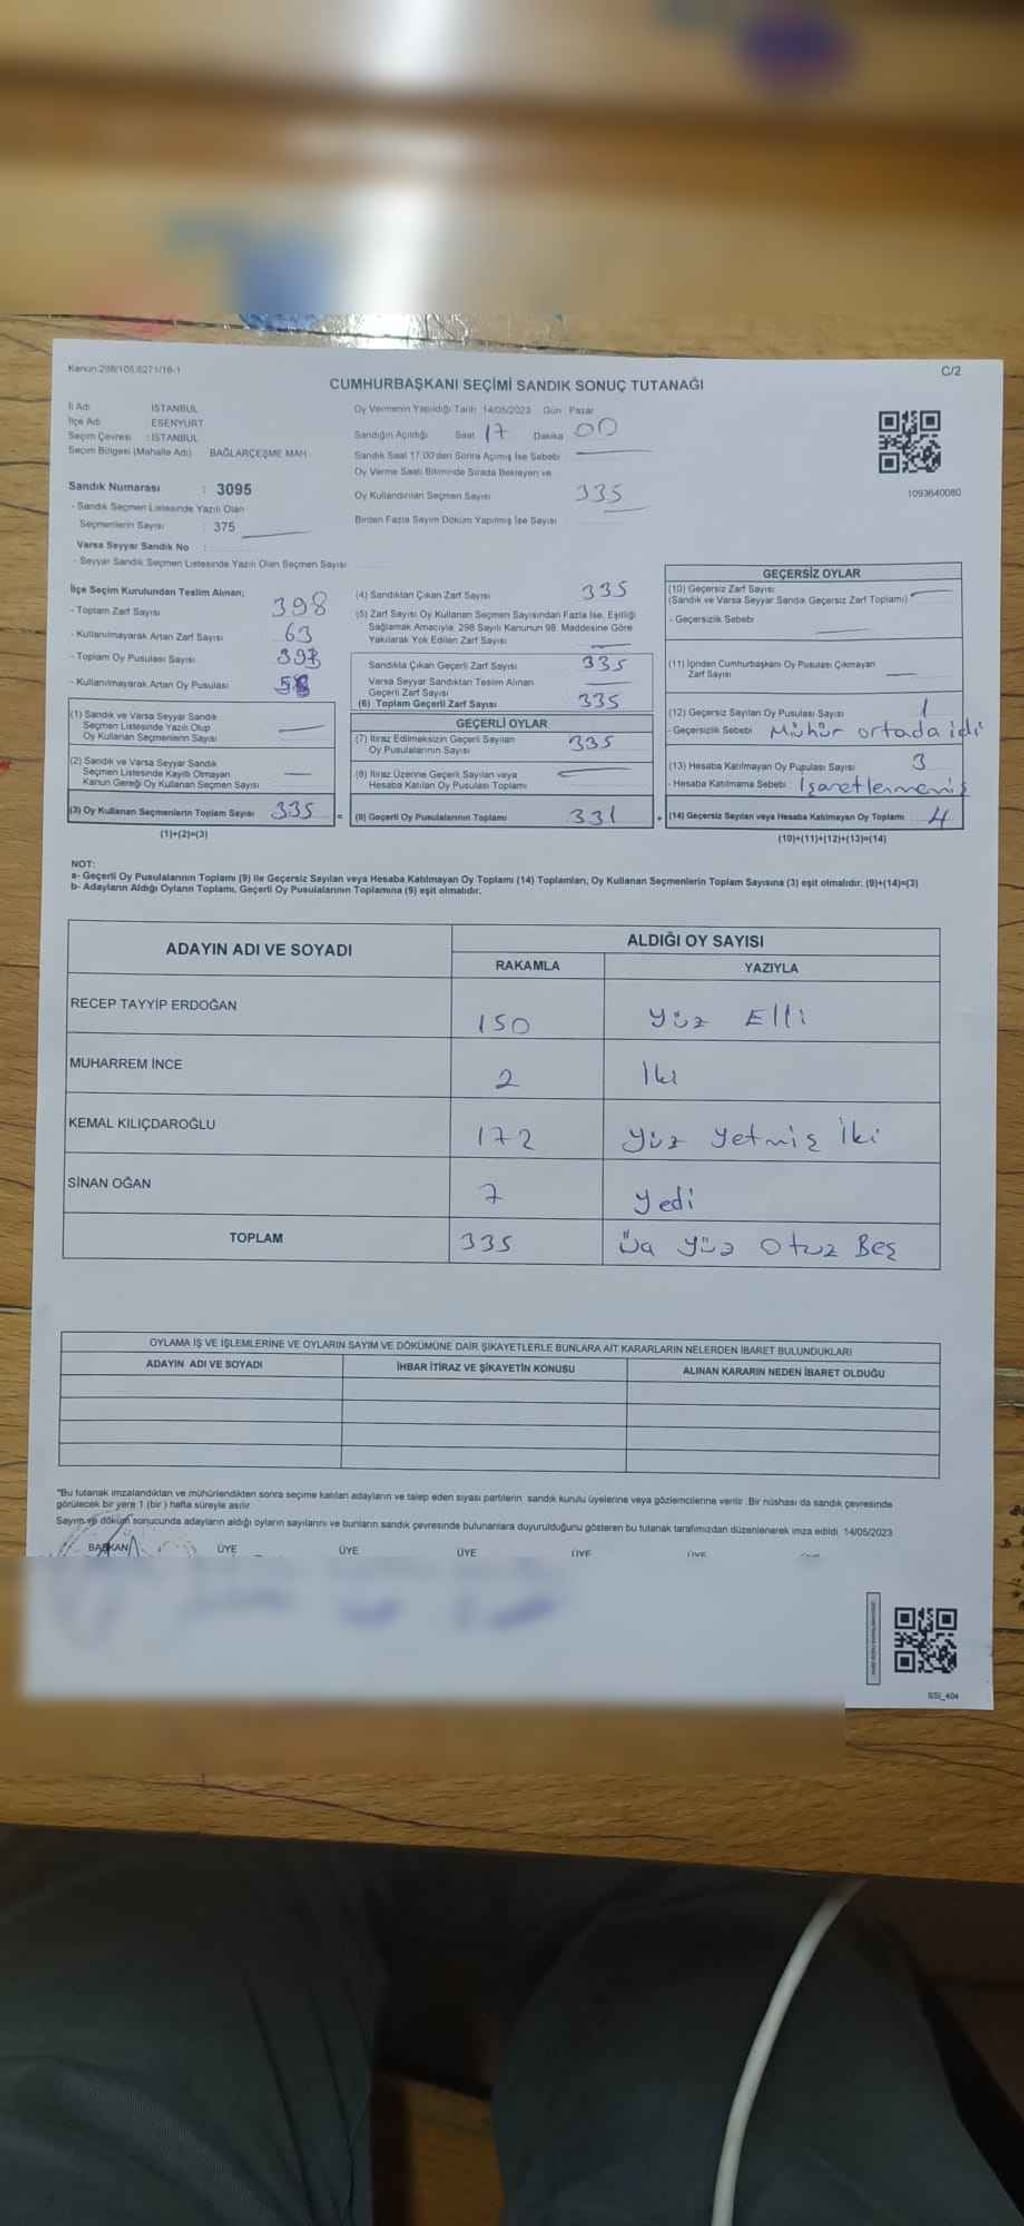 Kanun:298/105,6271/16-1
C/2
CUMHURBAŞKANI SEÇİMİ SANDIK SONUÇ TUTANAĞI
İl Adı İSTANBUL
İlçe Adı ESENYURT
Seçim Çevresi : İSTANBUL
Seçim Bölgesi (Mahalle Adı) BAĞLARÇEŞME MAH.
Sandık Numarası : 3095
- Sandık Seçmen Listesinde Yazılı Olan
Seçmenlerin Sayısı : 375
Varsa Seyyar Sandık No :
- Seyyar Sandık Seçmen Listesinde Yazılı Olan Seçmen Sayısı
Oy Vermenin Yapıldığı Tarih 14/05/2023 Gün Pazar
Sandığın Açıldığı Saat 17 Dakika 00
Sandık Saat 17:00'den Sonra Açılmış İse Sebebi
Oy Verme Saati Bitiminde Sırada Bekleyen ve
Oy Kullandırılan Seçmen Sayısı 335
Birden Fazla Sayım Döküm Yapılmış İse Sayısı
1093640080
İlçe Seçim Kurulundan Teslim Alınan;
- Toplam Zarf Sayısı 398
- Kullanılmayarak Artan Zarf Sayısı 63
- Toplam Oy Pusulası Sayısı
- Kullanılmayarak Artan Oy Pusulası
(1) Sandık ve Varsa Seyyar Sandık
Seçmen Listesinde Yazılı Olup
Oy Kullanan Seçmenlerin Sayısı
(2) Sandık ve Varsa Seyyar Sandık
Seçmen Listesinde Kayıtlı Olmayan
Kanun Gereği Oy Kullanan Seçmen Sayısı
(3) Oy Kullanan Seçmenlerin Toplam Sayısı 335
(1)+(2)=(3)
(4) Sandıktan Çıkan Zarf Sayısı 335
(5) Zarf Sayısı Oy Kullanan Seçmen Sayısından Fazla İse, Eşitliği
Sağlamak Amacıyla, 298 Sayılı Kanunun 98. Maddesine Göre
Yakılarak Yok Edilen Zarf Sayısı
Sandıkta Çıkan Geçerli Zarf Sayısı 335
Varsa Seyyar Sandıktan Teslim Alınan
Geçerli Zarf Sayısı
(6) Toplam Geçerli Zarf Sayısı 335
GEÇERLİ OYLAR
(7) İtiraz Edilmeksizin Geçerli Sayılan
Oy Pusulalarının Sayısı 335
(8) İtiraz Üzerine Geçerli Sayılan veya
Hesaba Katılan Oy Pusulası Toplamı
= (9) Geçerli Oy Pusulalarının Toplamı 331
GEÇERSİZ OYLAR
(10) Geçersiz Zarf Sayısı
(Sandık ve Varsa Seyyar Sandık Geçersiz Zarf Toplamı)
- Geçersizlik Sebebi
(11) İçinden Cumhurbaşkanı Oy Pusulası Çıkmayan
Zarf Sayısı
(12) Geçersiz Sayılan Oy Pusulası Sayısı 1
- Geçersizlik Sebebi Mühür ortada idi
(13) Hesaba Katılmayan Oy Pusulası Sayısı 3
- Hesaba Katılmama Sebebi İşaretlenmemiş
+ (14) Geçersiz Sayılan veya Hesaba Katılmayan Oy Toplamı 4
(10)+(11)+(12)+(13)=(14)
NOT:
a- Geçerli Oy Pusulalarının Toplamı (9) ile Geçersiz Sayılan veya Hesaba Katılmayan Oy Toplamı (14) Toplamları, Oy Kullanan Seçmenlerin Toplam Sayısına (3) eşit olmalıdır. (9)+(14)=(3)
b- Adayların Aldığı Oyların Toplamı, Geçerli Oy Pusulalarının Toplamına (9) eşit olmalıdır.
ADAYIN ADI VE SOYADI ALDIĞI OY SAYISI
RAKAMLA YAZIYLA
RECEP TAYYİP ERDOĞAN 150 Yüz Elli
MUHARREM İNCE 2 İki
KEMAL KILIÇDAROĞLU 172 Yüz Yetmiş İki
SİNAN OĞAN 7 Yedi
TOPLAM 335 Üç Yüz Otuz Beş
OYLAMA İŞ VE İŞLEMLERİNE VE OYLARIN SAYIM VE DÖKÜMÜNE DAİR ŞİKAYETLERLE BUNLARA AİT KARARLARIN NELERDEN İBARET BULUNDUKLARI
ADAYIN ADI VE SOYADI İHBAR İTİRAZ VE ŞİKAYETİN KONUSU ALINAN KARARIN NEDEN İBARET OLDUĞU
"Bu tutanak imzalandıktan ve mühürlendikten sonra seçime katılan adayların ve talep eden siyasi partilerin sandık kurulu üyelerine veya gözlemcilerine verilir. Bir nüshası da sandık çevresinde
görülecek bir yere 1 (bir) hafta süreyle asılır.
Sayım ve döküm sonucunda adayların aldığı oyların sayılarını ve bunların sandık çevresinde bulunanlara duyurulduğunu gösteren bu tutanak tarafımızdan düzenlenerek imza edildi. 14/05/2023
BAŞKAN ÜYE ÜYE ÜYE ÜYE ÜYE
SSİ_404